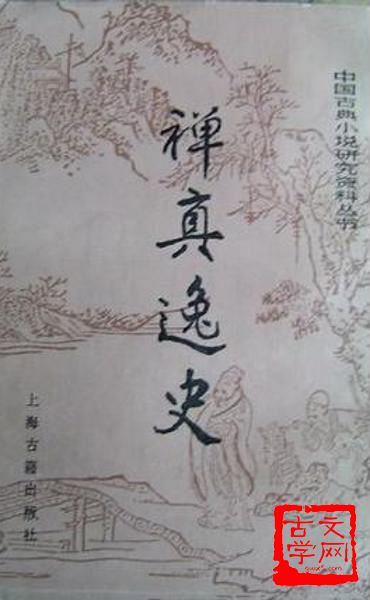 中国古典小说研究资料丛书
禅真逸史
上海古籍出版社
古文
学网
gwxx5.com